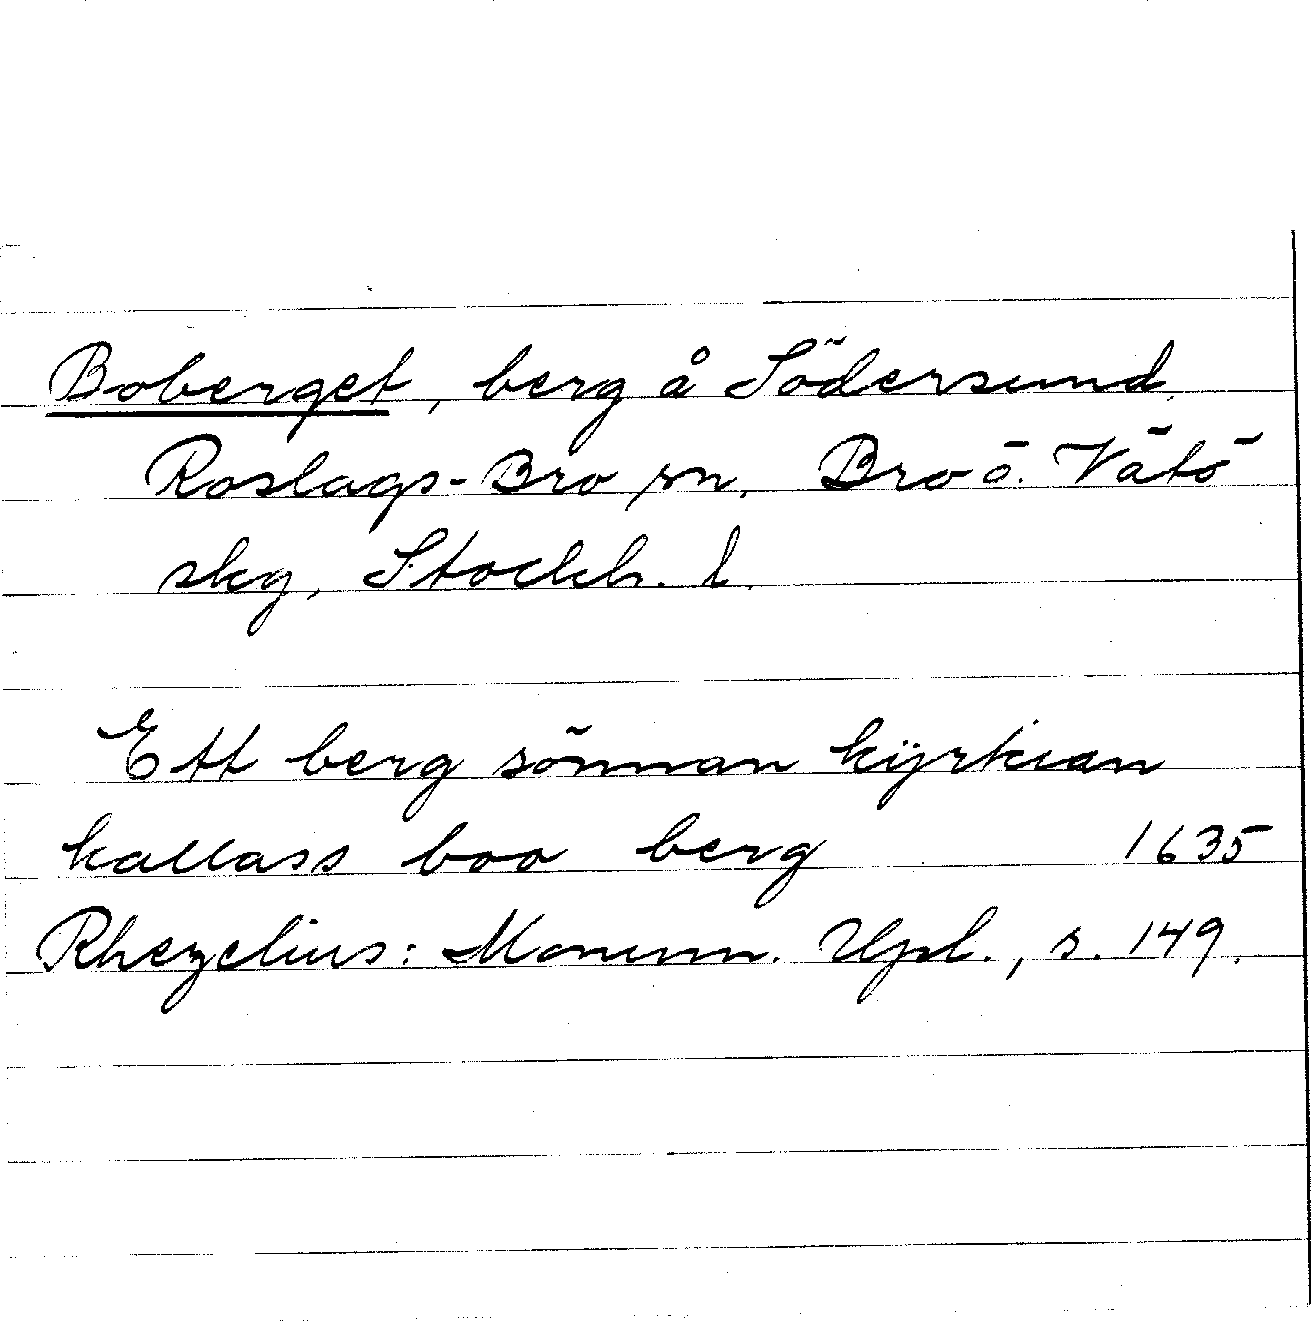 Boberget, berg å Södersund,
Roslags-Bro sn, Bro o. Vätö
skg, Stockh. l.
Ett berg sönnan kÿrkian
kallass boo berg 1635
Rhezelius: Monum. Upl., s. 149.